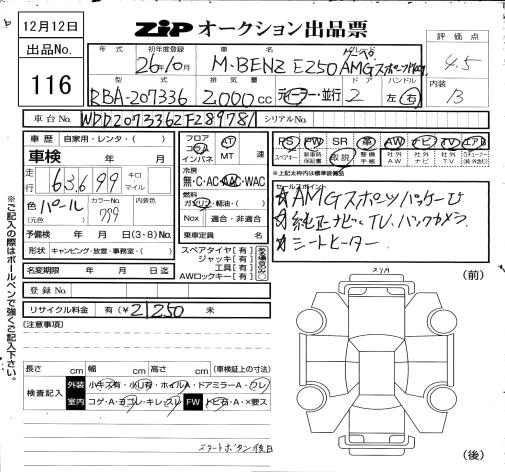 12月12日
ZIP オークション出品票
出品No.
116
年式
初年度登録
26年10月
車名
カブリオレ
M・BENZ E250 AMGスポーツPKG
評価点
4.5
型式
RBA-207336
排気量
2,000cc
ディーラー・並行
ドア
2
ハンドル
左・右
内装
B
車台No.
WDD2073362F289781
シリアルNo.
車歴 自家用・レンタ・( )
車検 年 月
走行
63,699
キロ
マイル
色 パール
(元色)
カラーNo.
799
内装色
予備検 年 月 日(3・8)No.
形状 キャンピング・放置・事務室・( )
名変期限 年 月 日迄
登録No.
リサイクル料金 有(¥ 21250 未
フロア
コラム
インパネ
AT
MT
速
冷房
無・C・AC・AAC・WAC
燃料
ガソリン・軽油・( )
Nox 適合・非適合
乗車定員 名
スペアタイヤ[有]
ジャッキ[有]
工具[有]
AWロックキー[有]
PS PW SR 革 AW ナビ TV エアB
スペアキー 新車時保証書 取説 整備手帳 社外AW 社外ナビ 社外TV
※上記太枠内は標準装備品
セールスポイント
☆AMGスポーツパッケージ
☆純正ナビ、TV、バックカメラ
☆シートヒーター
(注意事項)
長さ cm 幅 cm 高さ cm (車検証上の寸法)
検査記入
外装 小キズ有・小凹有・ホイルA・ドアミラーA・ワレ
室内 コゲ・A・ヨゴレ・キレ・スレ FW トビ石・A・×要ス
スタートボタン後日
スリA
(前)
(後)
※ご記入の際はボールペンで強くご記入下さい。